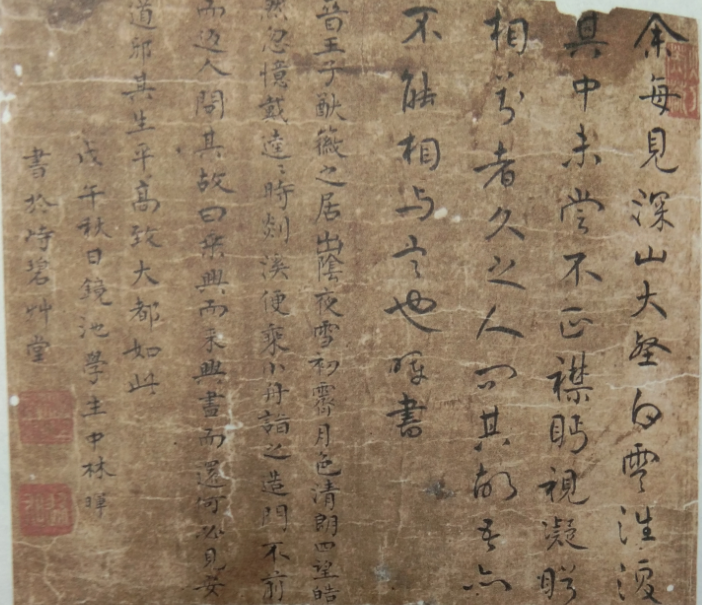 余每見深山大壑白雲往復
其中未嘗不正襟眄視凝眸
相對者久之人問其故吾亦
不能相与言也暉書
晉王子猷徽之居山陰夜雪初霽月色清朗四望皓
然忽憶戴逵逵時剡溪便乘小舟詣之造門不前
而返人問其故曰乘興而來興盡而還何必見安
道邪其生平高致大都如此
戊午秋日鏡池學生中林暉
書於倚碧艸堂